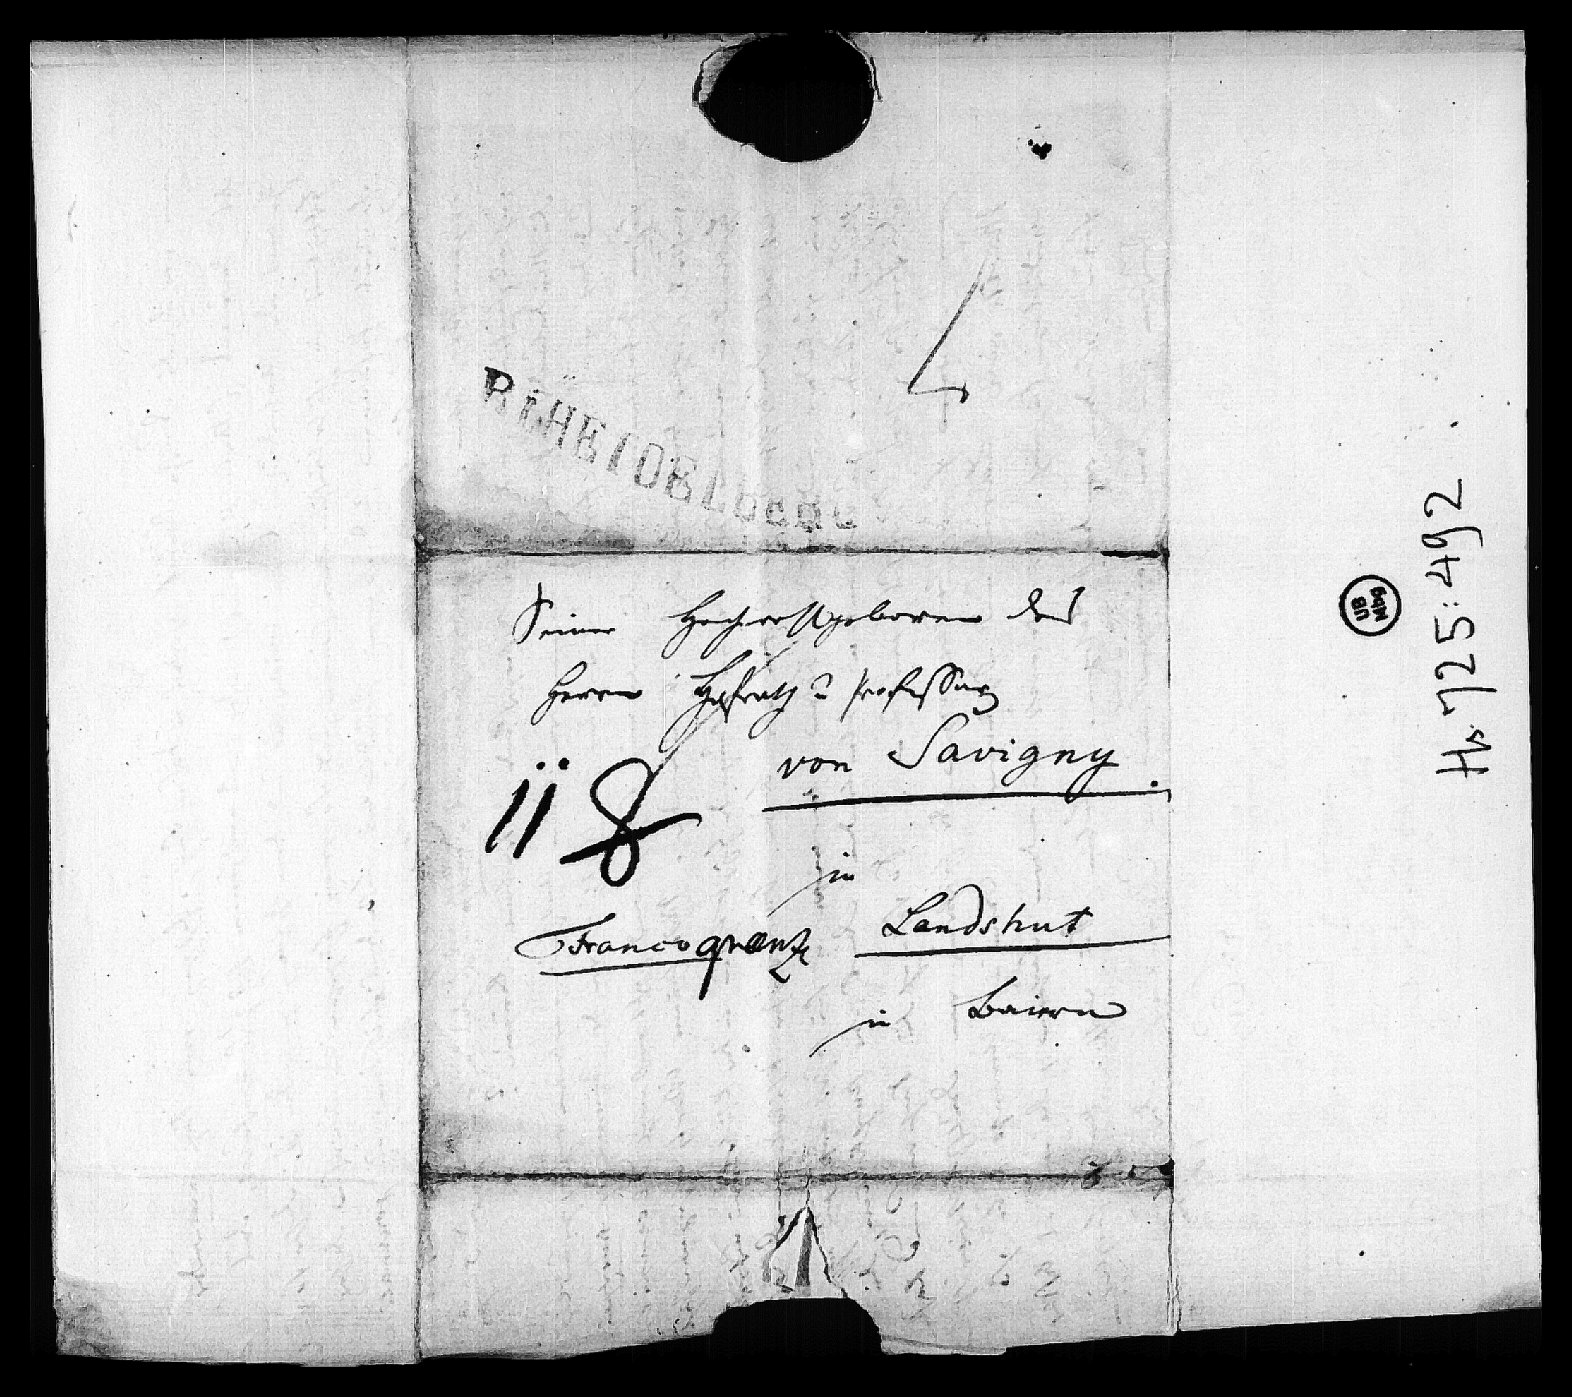 R.4.HEIDELBERG
Seiner Hochwohlgeboren dem
Herrn Hofrath u Professor
von Savigny.
in
Franco grenze
Landshut
in Baiern
UB
Mbg
Hs 725:492